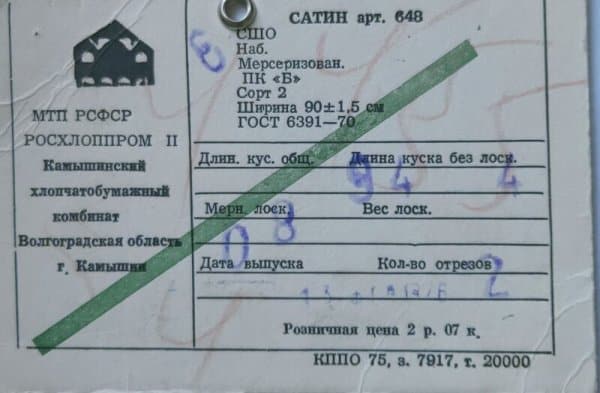 САТИН арт. 648
СШО
Наб.
Мерсеризован.
ПК «Б»
Сорт 2
Ширина 90±1,5 см
ГОСТ 6391—70
МТП РСФСР
РОСХЛОППРОМ II
Камышинский
хлопчатобумажный
комбинат
Волгоградская область
г. Камышин
Длин. кус. общ. Длина куска без лоск.
94 4
Мерн. лоск. Вес лоск.
08
Дата выпуска Кол-во отрезов
2
Розничная цена 2 р. 07 к.
КППО 75, з. 7917, т. 20000